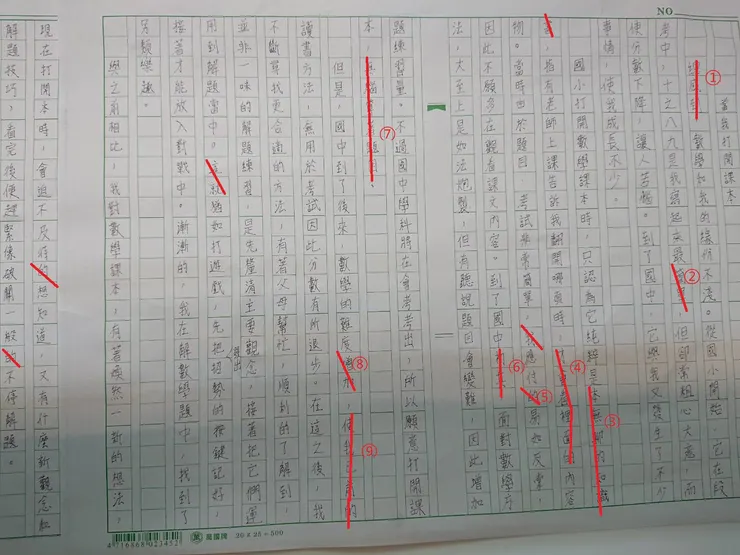 NO.
當我打開課本
①
數學和我的緣份不淺。從國小開始,它在段
考中,十之八九是我寫起來最
②
但卻常粗心大意,而
使分數下降,讓人苦惱。到了國中,它與我又發生了不少
事情,使我成長不少。
國小打開數學課本時,只認為它純粹是
③
指有老師上課告訴我翻開哪頁時,
④
裡面的內容
物。當時由於題目、考試非常簡單,
⑤
易如反掌,
因此不願多在觀看課文內容。到了國中
⑥
面對數學方
法,大至上是如法炮製,但有聽說題目會變難,因此增加
題練習量。不過國中學科將在會考考出,所以願意打開課
本,
⑦
但是,國中到了後來,數學的難度
⑧
⑨
讀書方法,無用於考試因此分數有所退步。在這之後,我
不斷尋找更合適的方法,有著父母幫忙,順利的了解到,
並非一味的解題練習,是先釐清主要觀念,接著把它們運
用到解題當中。
猶如打遊戲,先把招勢的按鍵記好,
接著才能放入對戰中。漸漸的,我在解數學題中,找到了
另類樂趣。
與之前相比,我對數學課本,有著煥然一新的想法,
現在打開本時,會迫不及待的想知道,又有什麼新觀念和
解題技巧,看完後便趕緊像破關一般的不停解題。
4716868023452
萬國牌 20 x 25 = 500